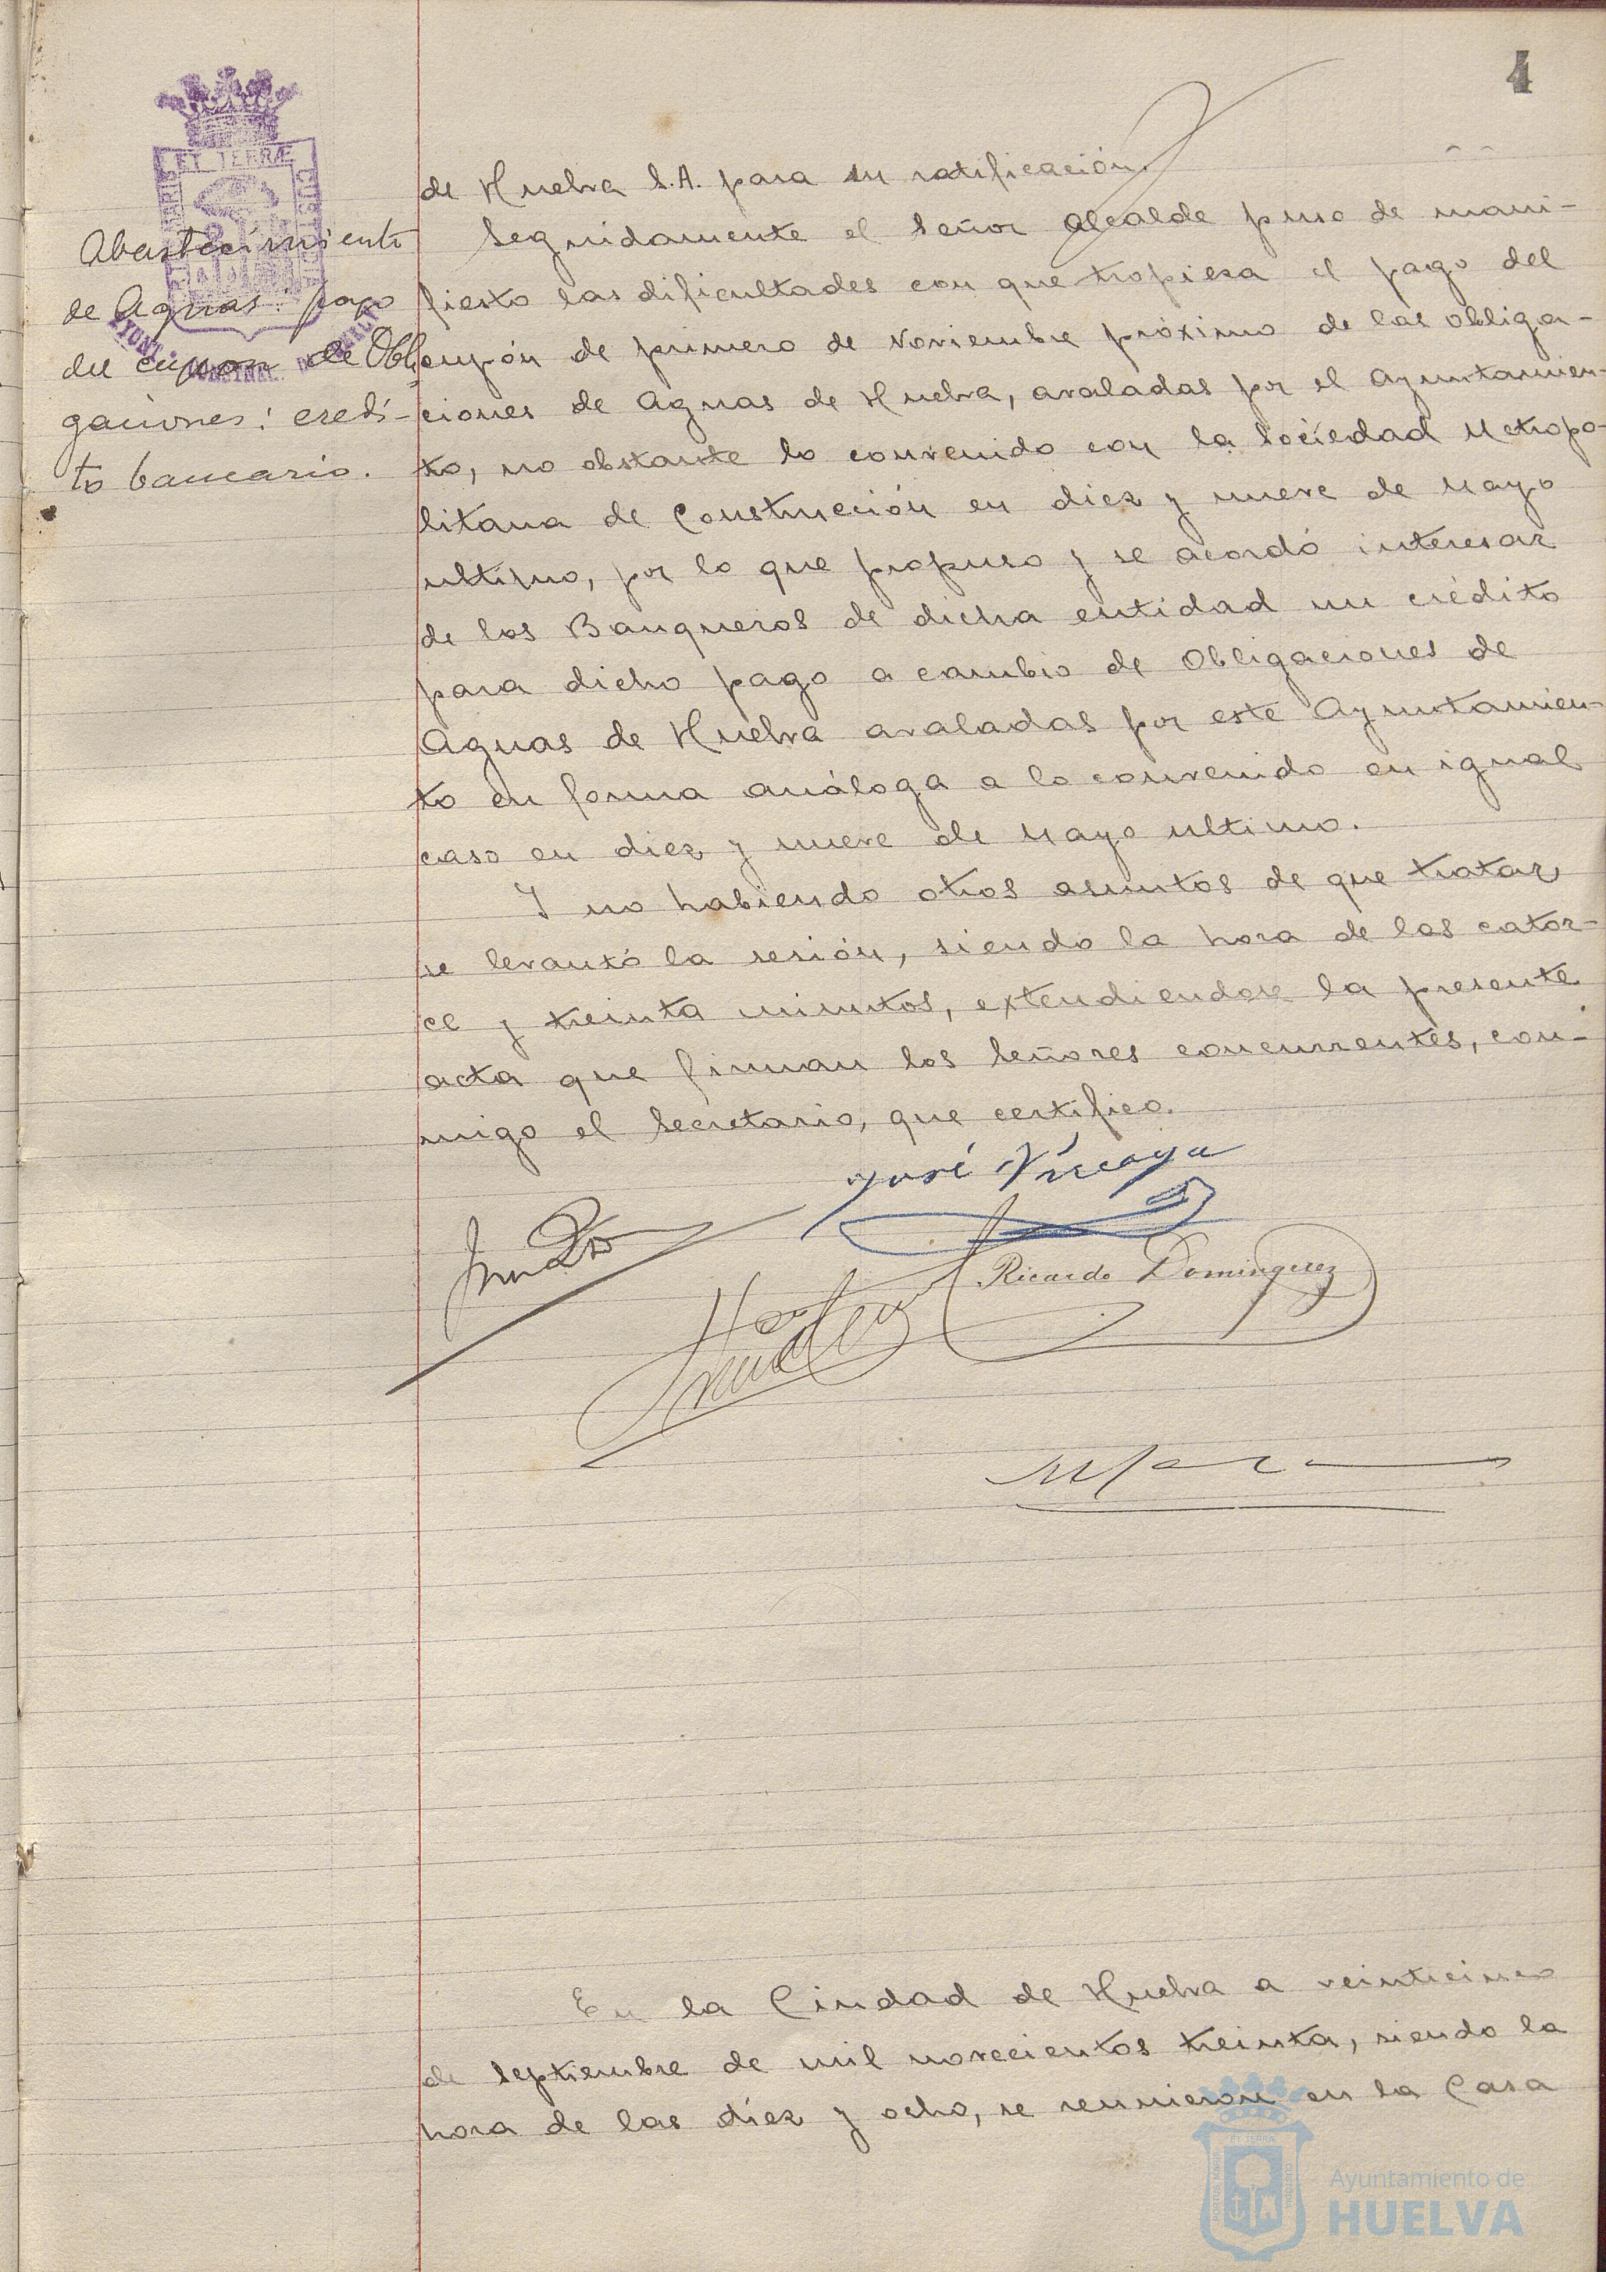 4
de Huelva S.A. para su ratificación.
Abastecimiento
de Aguas: pago
del cupon de Obli-
gaciones: credi-
to bancario.
Seguidamente el Señor Alcalde puso de mani-
fiesto las dificultades con que tropieza el pago del
cupón de primero de Noviembre próximo de las obliga-
ciones de Aguas de Huelva, avaladas por el Ayuntamien-
to, no obstante lo convenido con la Sociedad Metropo-
litana de Construcción en diez y nueve de Mayo
ultimo, por lo que propuso y se acordó interesar
de los Banqueros de dicha entidad un crédito
para dicho pago a cambio de Obligaciones de
Aguas de Huelva avaladas por este Ayuntamien-
to en forma análoga a lo convenido en igual
caso en diez y nueve de Mayo ultimo.
Y no habiendo otros asuntos de que tratar
se levantó la sesión, siendo la hora de las cator-
ce y treinta minutos, extendiendose la presente
acta que firman los Señores concurrentes, con-
migo el Secretario, que certifico.
José Vizcaya
Ricardo Dominguez
En la Ciudad de Huelva a veinticinco
de Septiembre de mil novecientos treinta, siendo la
hora de las diez y ocho, se reunieron en la Casa
Ayuntamiento de
HUELVA